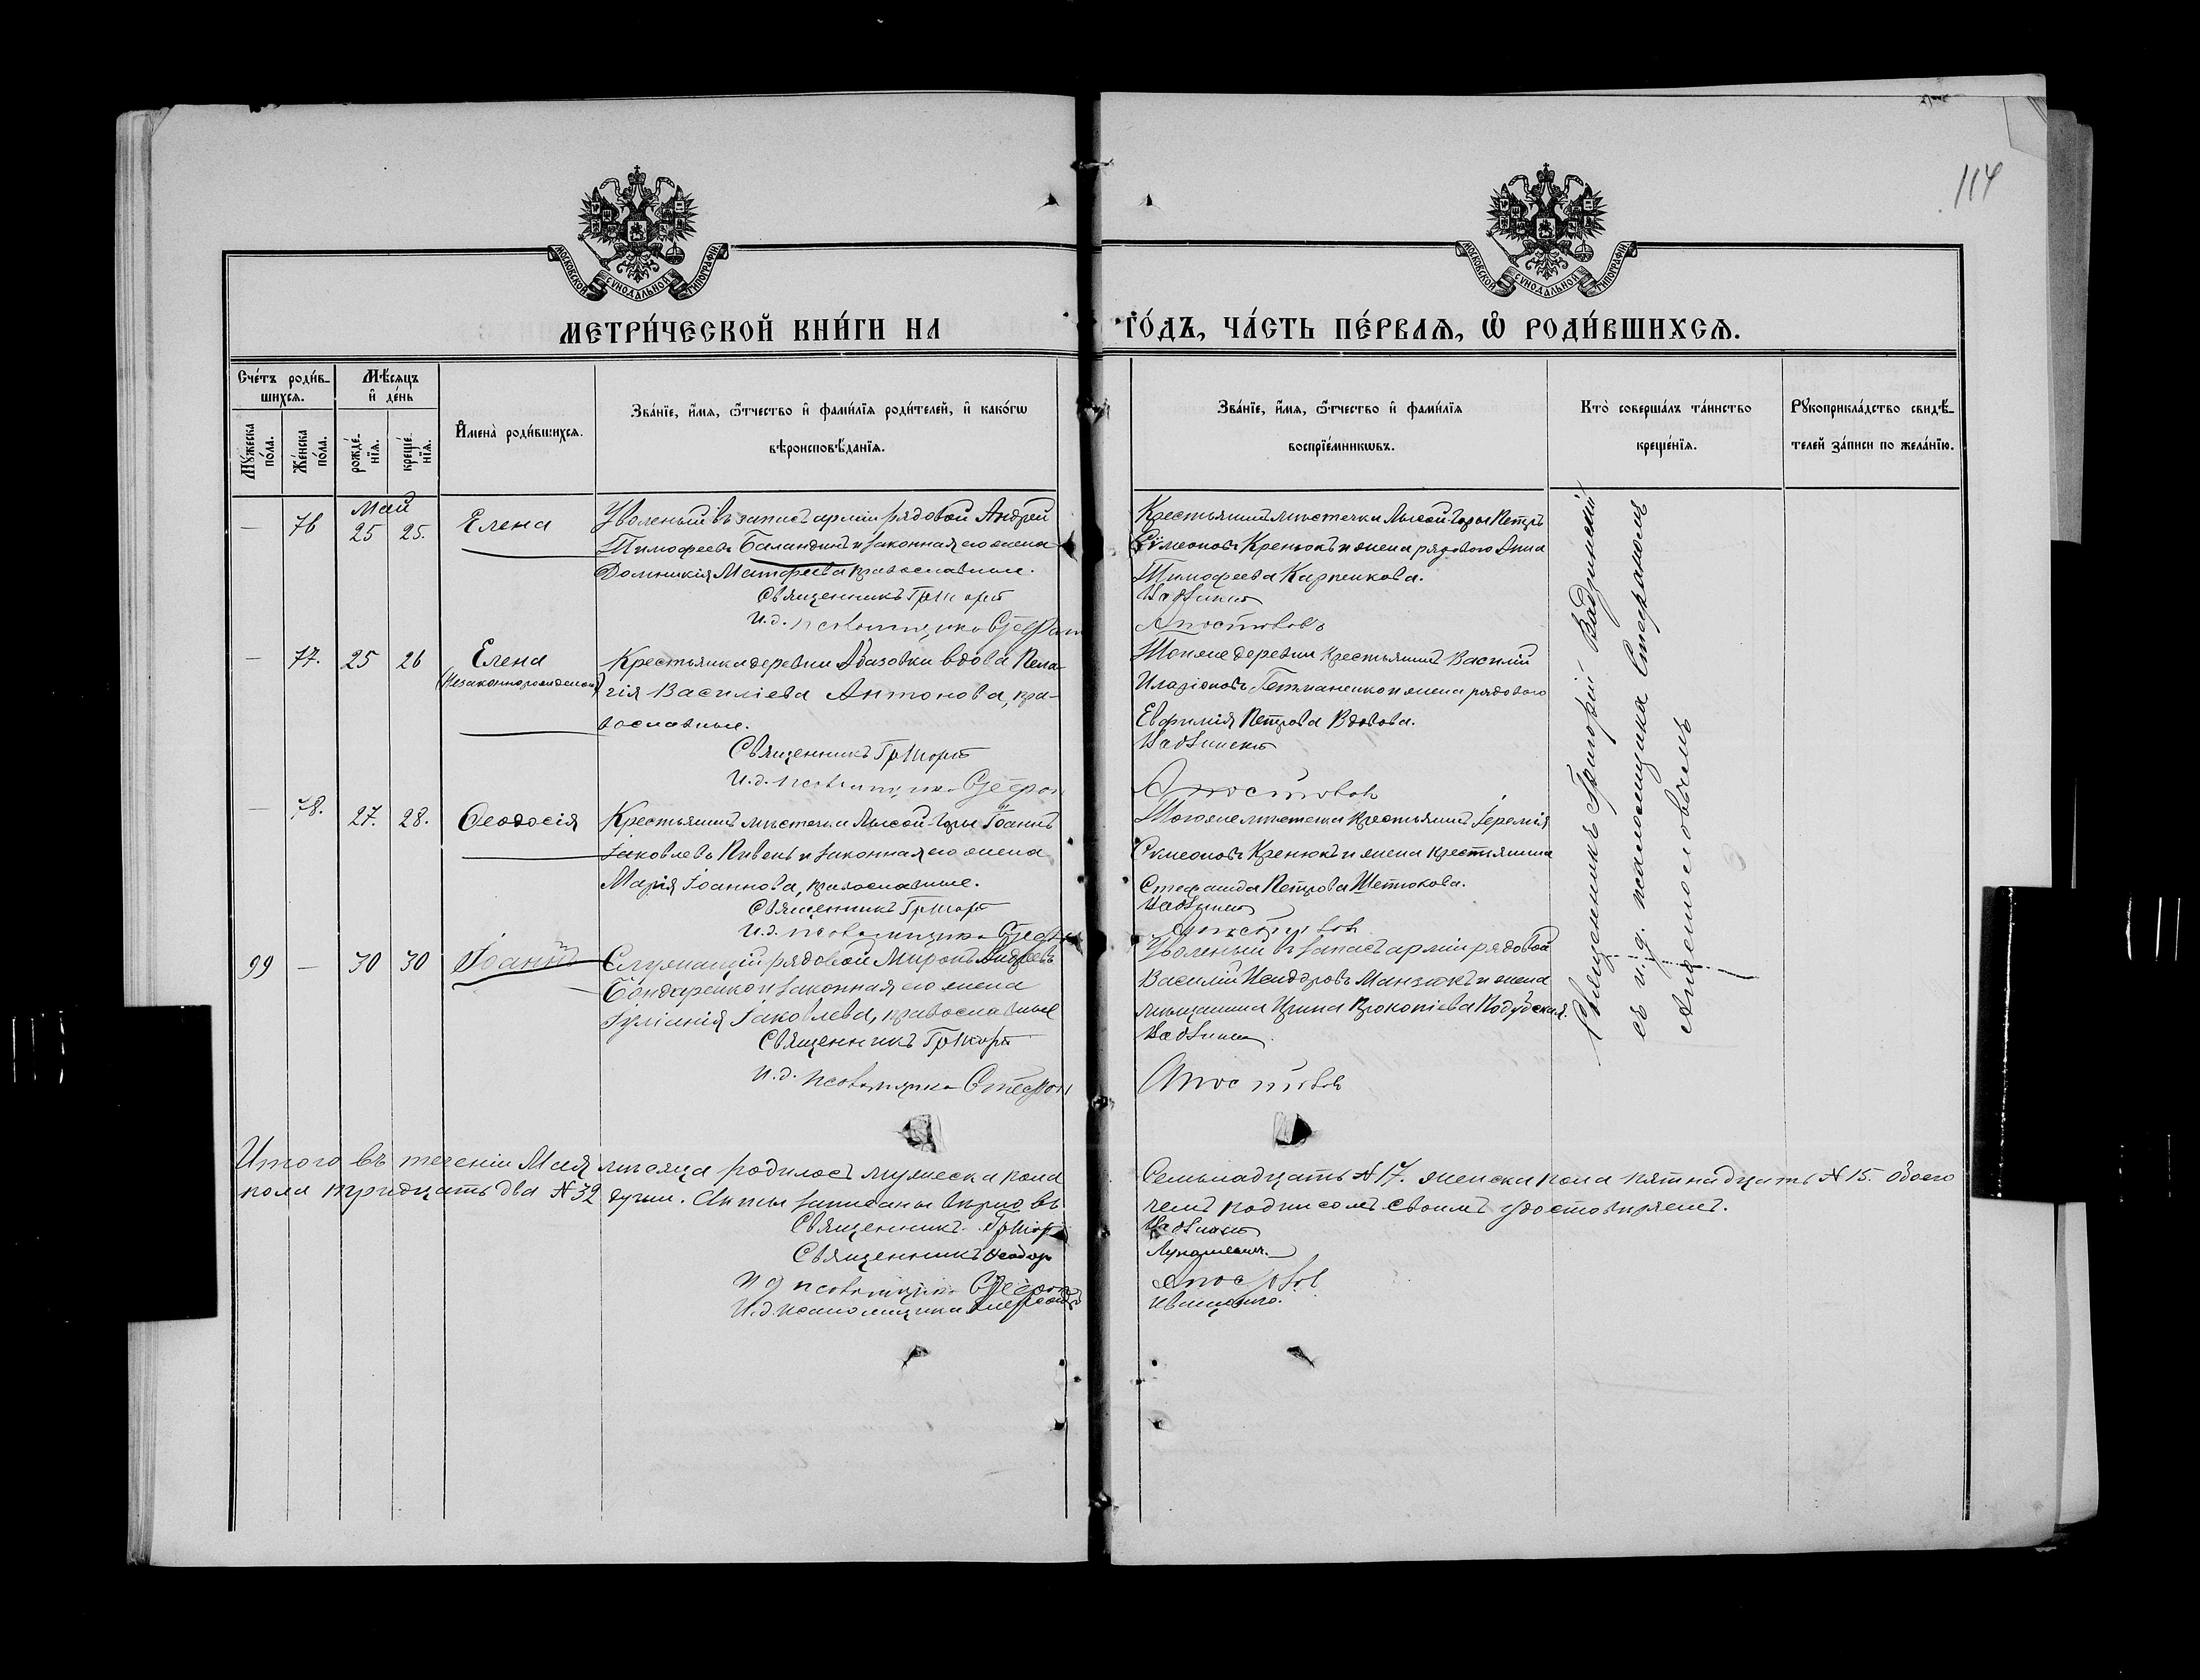 114
МОСКОВСКОЙ СѴНОДАЛЬНОЙ ТИПОГРАФІИ
МОСКОВСКОЙ СѴНОДАЛЬНОЙ ТИПОГРАФІИ
МЕТРИ́ЧЕСКОЙ КНИ́ГИ НА
ГО́ДЪ, ЧА́СТЬ ПЕ́РВАѦ, Ѽ РОДИ́ВШИХСѦ.
Сче́тъ роди́в-
шихсѧ.
Мꙋ́жеска по́ла.
Же́нска по́ла.
Мѣ́сѧцъ
и҆ де́нь
рожде́-
нїѧ.
креще́-
нїѧ.
И҆мена̀ роди́вшихсѧ.
Зва́нїе, и҆́мѧ, ѻ҆́тчество и҆ фами́лїѧ роди́телей, и҆ како́гѡ
вѣроисповѣ́данїѧ.
Зва́нїе, и҆́мѧ, ѻ҆́тчество и҆ фами́лїѧ
воспрїе́мникѡвъ.
Кто̀ соверша́лъ та́инство
креще́нїѧ.
Рꙋкоприкла́дство свидѣ́-
телей за́писи по жела́нїю.
Май
— 76 25 25. Елена
Уволеный въ запасъ арміи рядовой Андрей
Тимофеевъ Баландинъ и законная его жена
Домникія Матфеева православные.
Священникъ Григорій
И.д. псаломщика Стефан
Крестьянинъ мѣстечка Лысой-Горы Петръ
Сѵмеоновъ Кренюкъ и жена рядового Анна
Тимофеева Карпенкова.
Вадзинскій
Апостоловъ
— 77. 25 26 Елена
(Незаконнорожденная)
Крестьянка деревни Абазовки вдова Пела-
гія Василіева Антонова, пра-
вославные.
Священникъ Григорій
И.д. псаломщика Стефан
Тоїже деревни крестьянинъ Василій
Иларіоновъ Гетманенко и жена рядового
Евфимія Петрова Вдовова.
Вадзинскій
Апостоловъ
— 78. 27. 28. Ѳеодосія
Крестьянинъ мѣстечка Лысой-Горы Іоаннъ
Іаковлевъ Пивень и законная его жена
Марія Іоаннова, православные.
Священникъ Григорій
И.д. псаломщика Стефан
Тогоже мѣстечка крестьянинъ Іеремія
Сѵмеоновъ Кренюкъ и жена крестьянина
Стефанида Петрова Шетюкова.
Вадзинскій
Апостоловъ
99 — 30 30 Іоаннъ
Служащій рядовой Миронъ Андреевъ
Бондаренко и законная его жена
Іуліанія Іаковлева, православные
Священникъ Григорій
И.д. псаломщика Стефан
Уволеный въ запасъ арміи рядовой
Василій Исидоровъ Манзюкъ и жена
мѣщанина Ирина Прокопіева
Вадзинскій
Апостоловъ
Священникъ Григорій Вадзинскій
съ и.д. псаломщика Стефаномъ
Апостоловымъ
Итого въ теченіи Мая мѣсяца родилось мужеска пола
Семьнадцать №17. женска пола пятнадцать №15. обоего
пола тридцать два №32 души. Акты записаны вѣрно въ
чемъ подписомъ своимъ удостовѣряемъ.
Священникъ Григорій
Вадзинскій
Священникъ Ѳеодоръ
И д псаломщика Стефан
Апостолов
И.д. псаломщика
Иващенко.